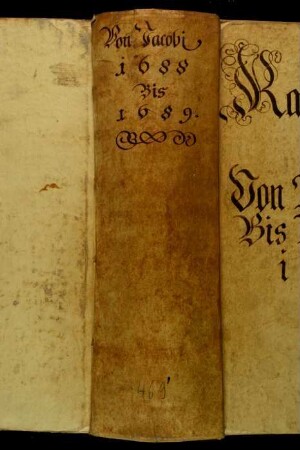 Von Jacobi
1688
Bis
1689.
Ra
Von
Bis
1